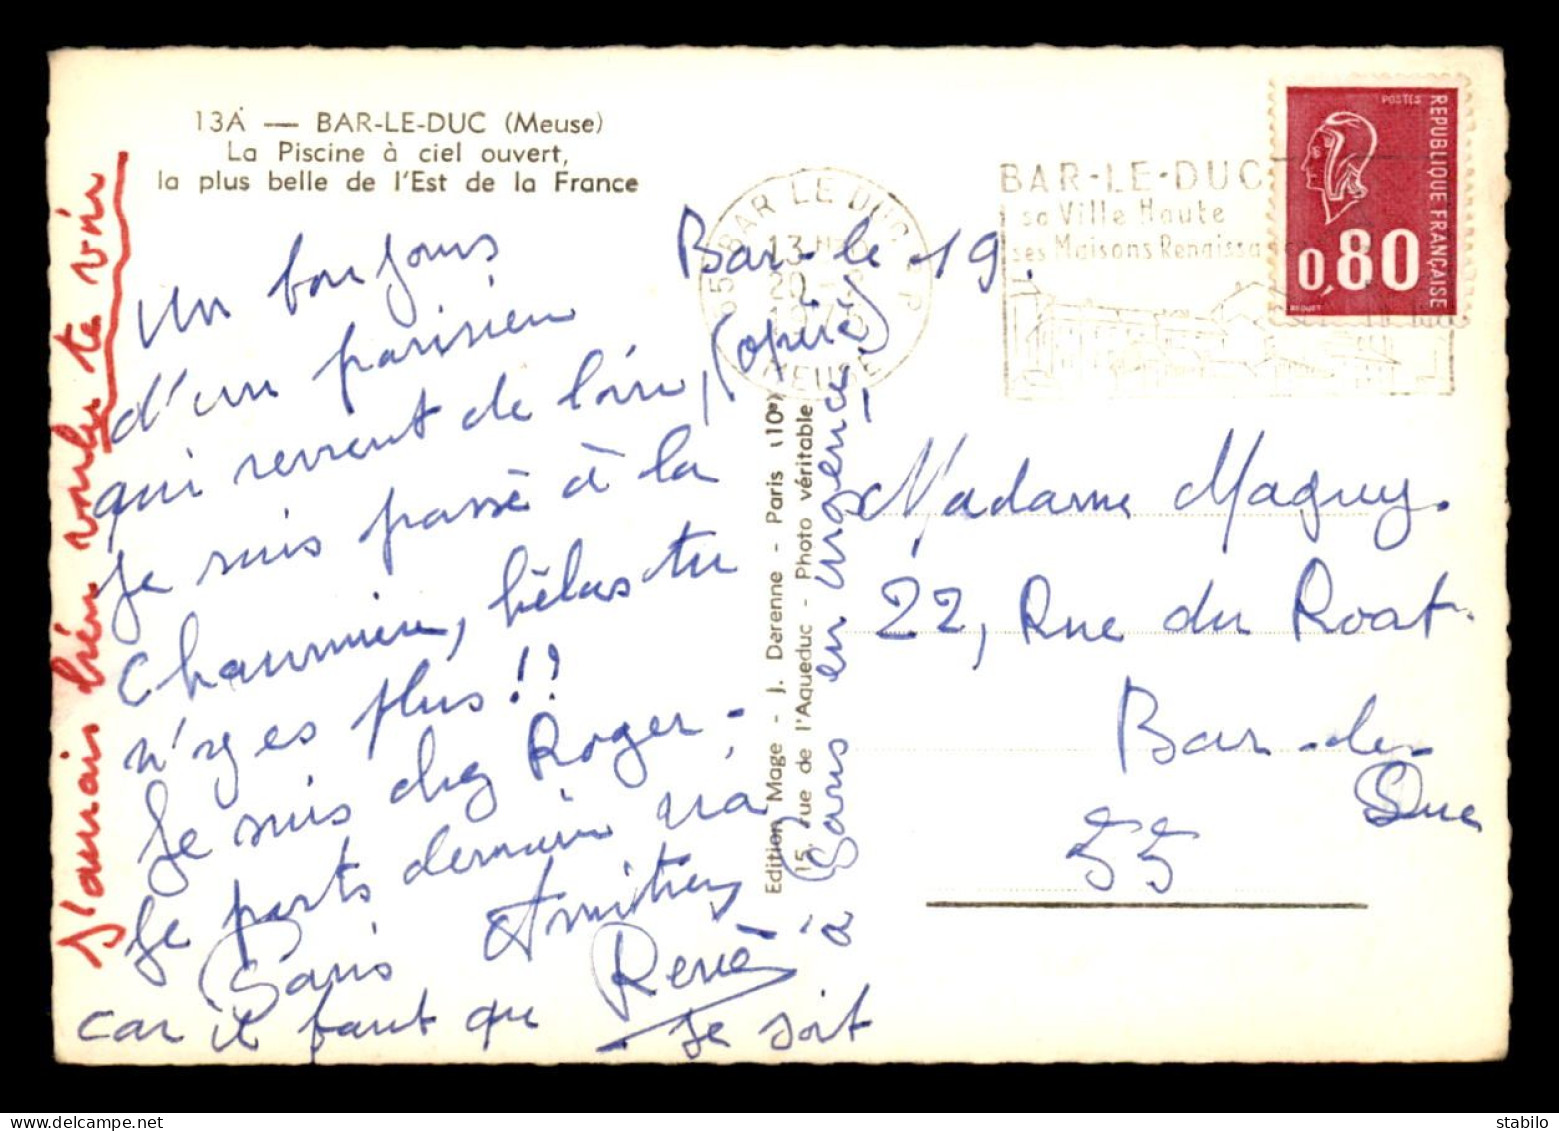 13A — BAR-LE-DUC (Meuse)
La Piscine à ciel ouvert,
la plus belle de l'Est de la France
Bar-le 19.
Un bonjour
d'un parisien
qui revient de loin, (opéré)
Je suis passé à la
Chaumière, hélas tu
n'y es plus!!
Je suis chez Roger -
Je parts demain
Paris Amitiés
René
car il faut que je soit
à Paris en urgence
J'aurais bien voulu te voir
Edition Mage - J. Derenne - Paris (10e)
15, rue de l'Aqueduc - Photo véritable
55 BAR LE DUC R P
13H
20 -
1976
MEUSE
BAR-LE-DUC
sa Ville Haute
ses Maisons Renaissance
POSTES
REPUBLIQUE FRANÇAISE
0,80
BEQUET
Madame Maguy.
22, Rue du Roat.
Bar-le-
Duc
55
stabilo